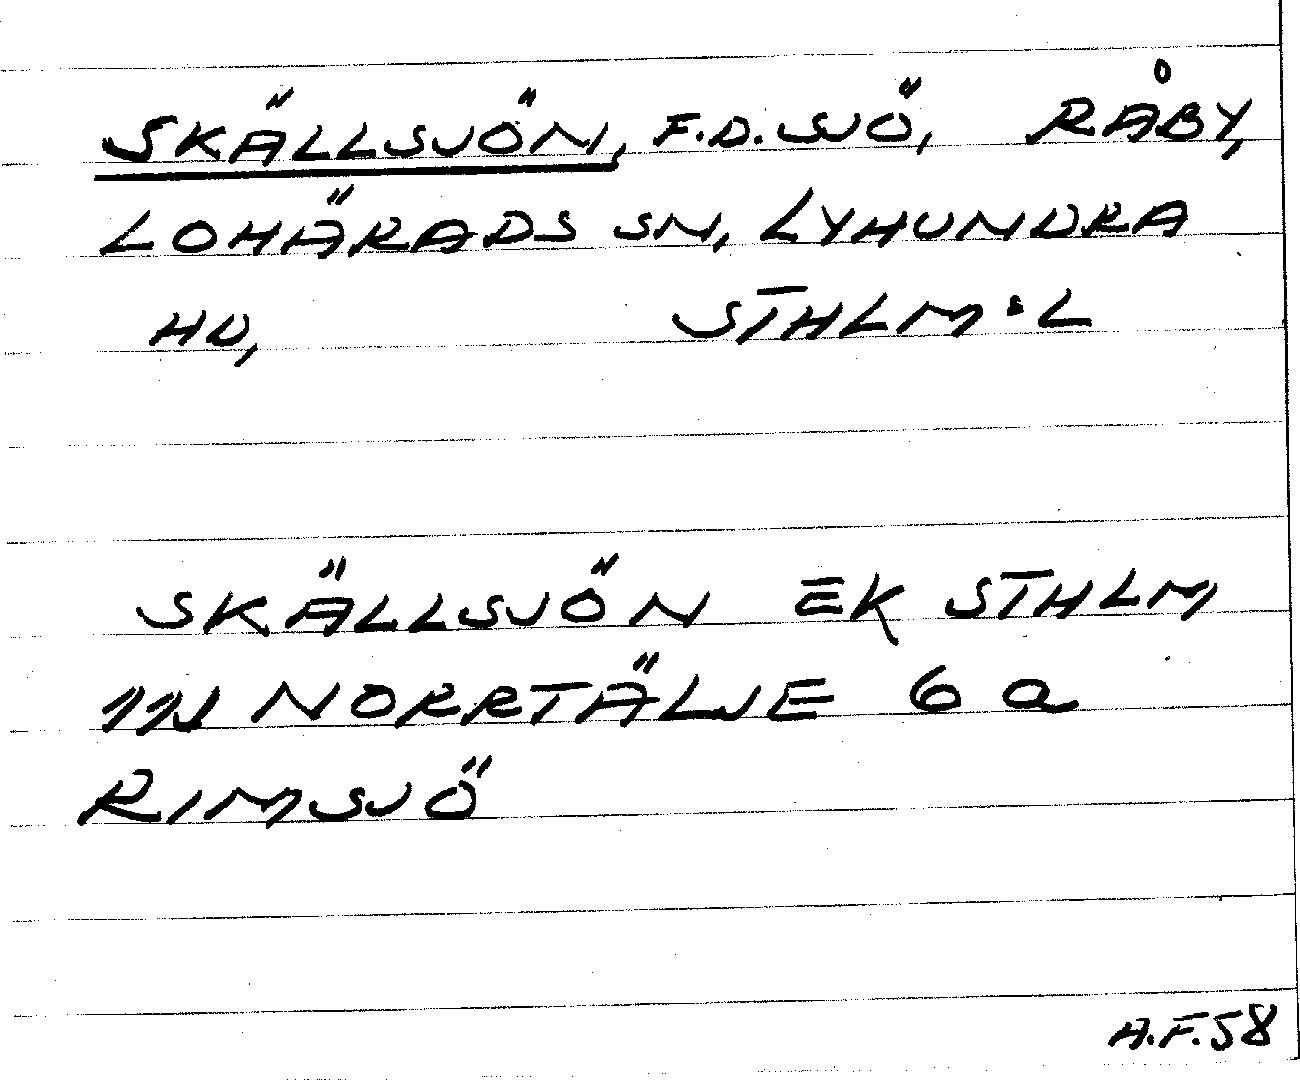 SKÄLLSJÖN, F.D. SJÖ, RÅBY,
LOHÄRADS SN, LYHUNDRA
HD, STHLM:L
SKÄLLSJÖN EK STHLM
111 NORRTÄLJE 6 a
RIMSJÖ
A.F. 58